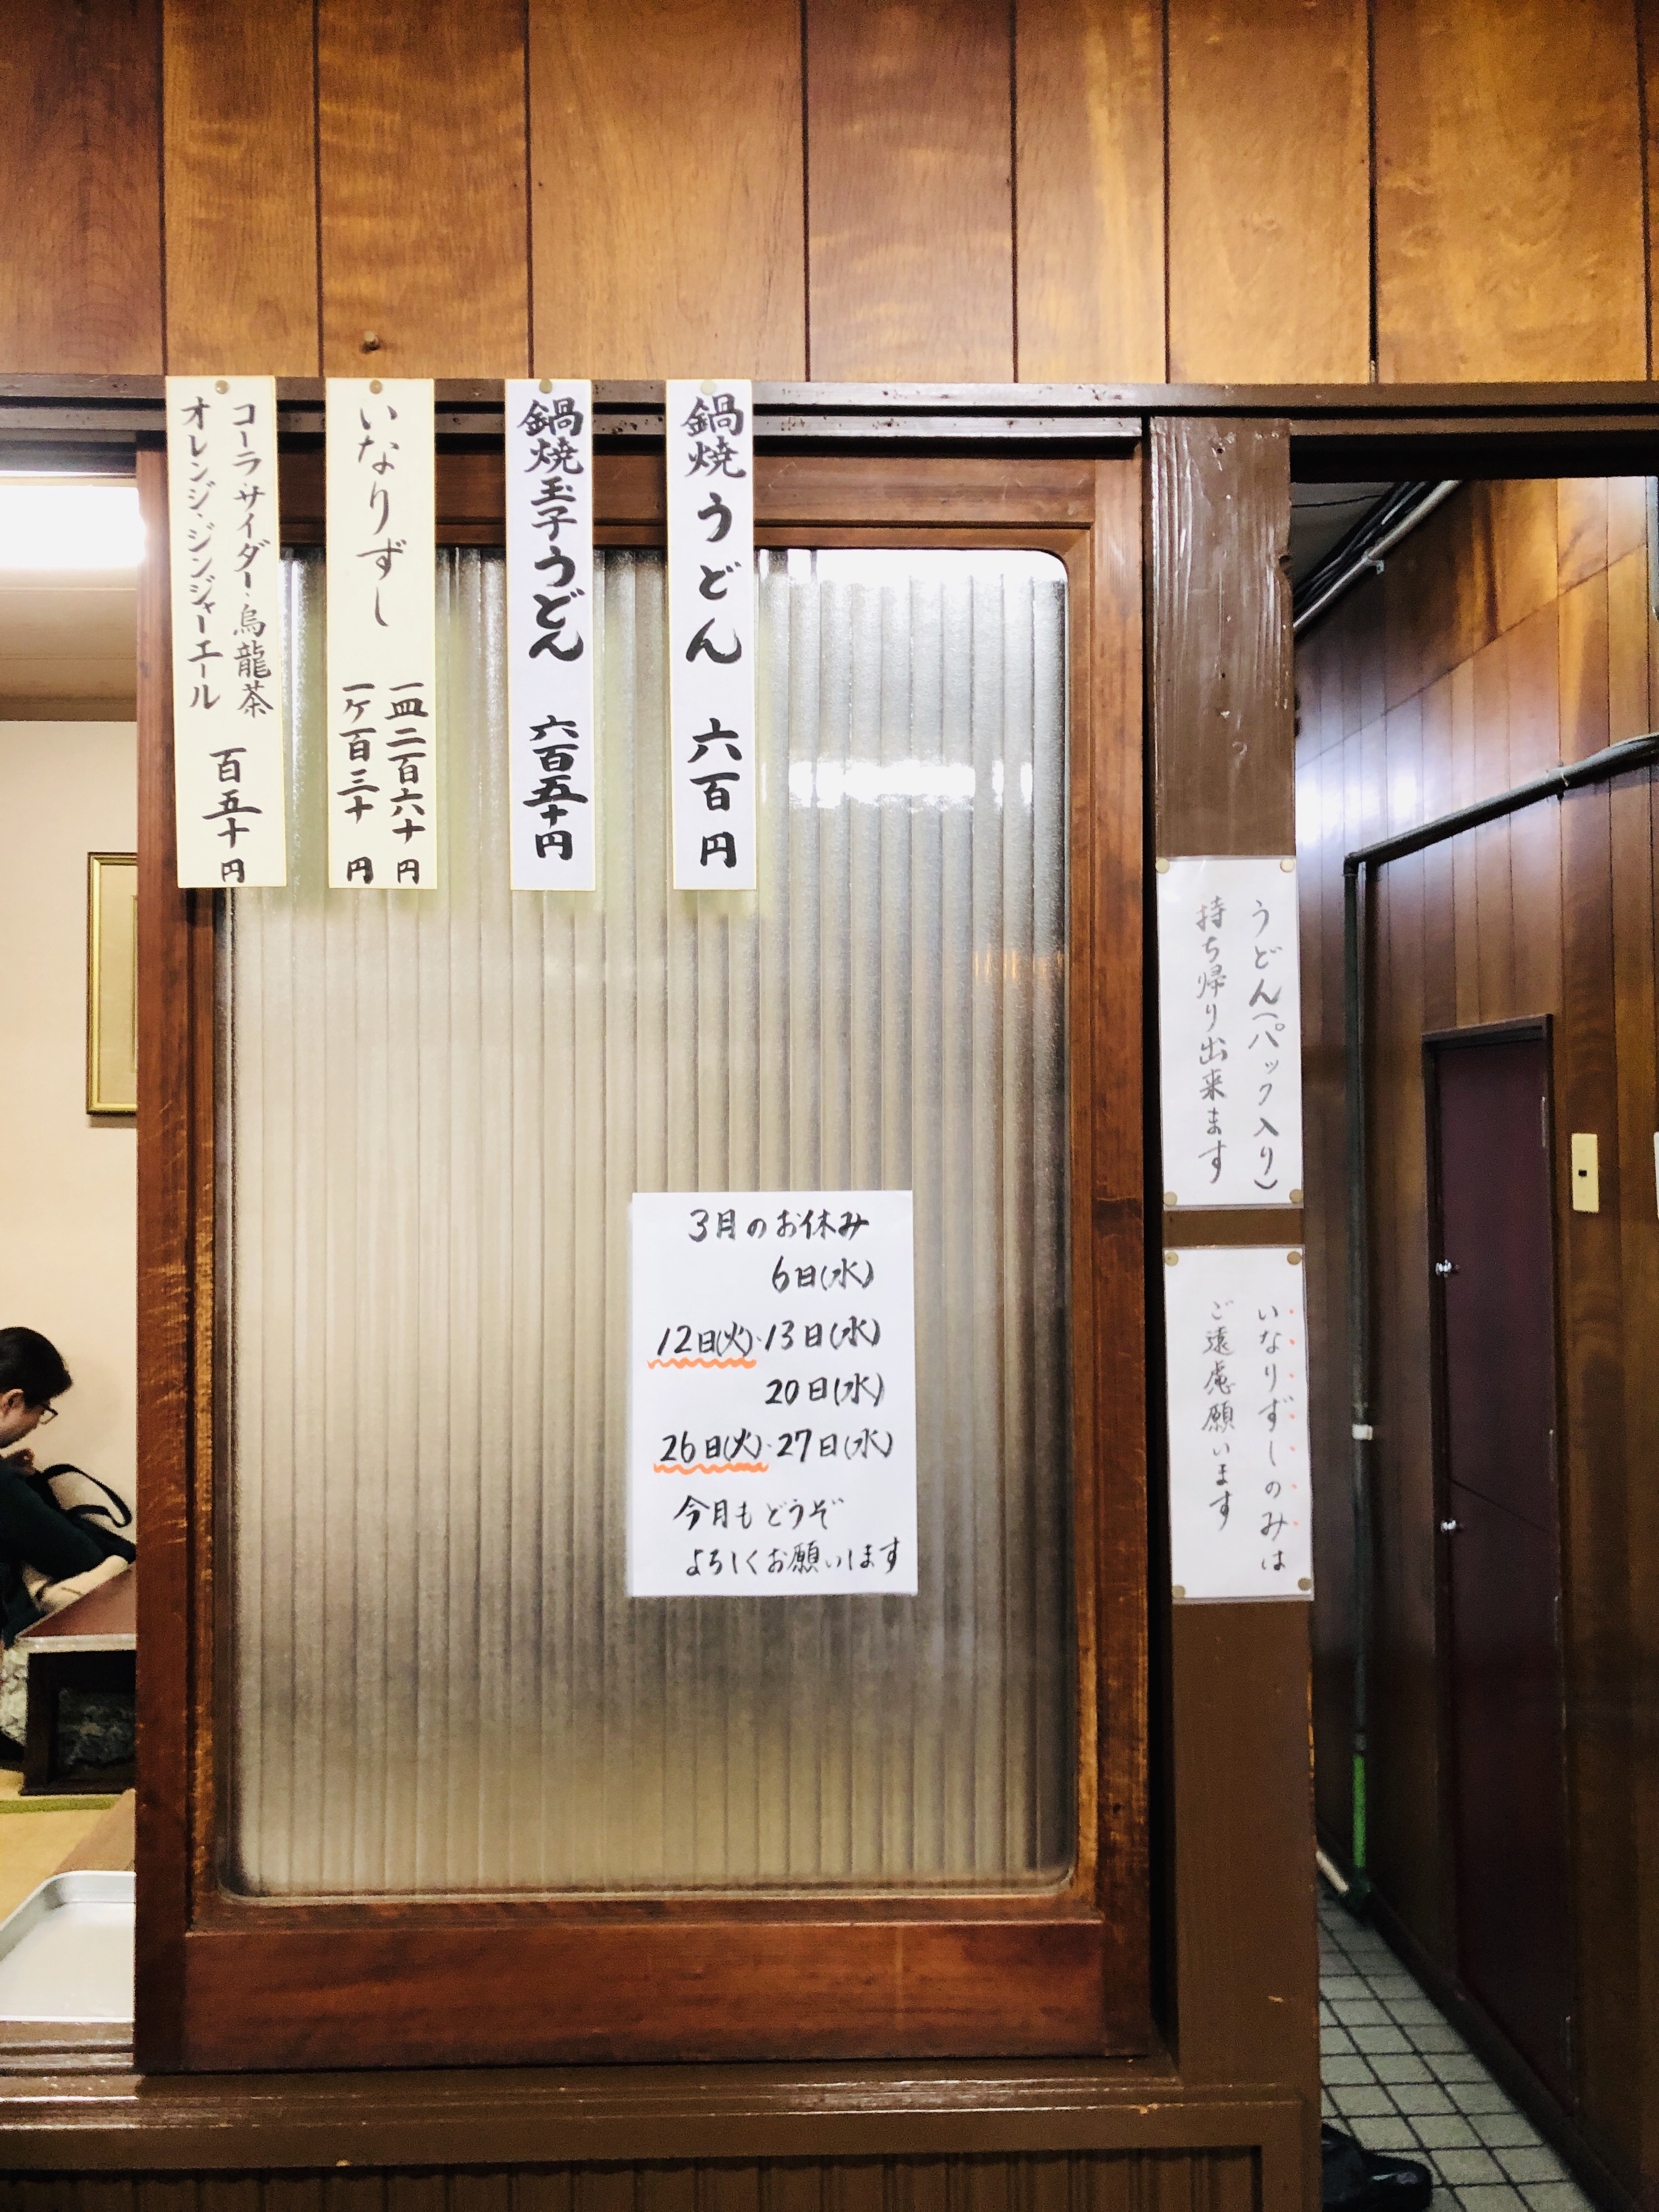 鍋焼うどん 六百円
鍋焼玉子うどん 六百五十円
いなりずし
一皿二百六十円
一ヶ百三十円
コーラ・サイダー・烏龍茶
オレンジ・ジンジャーエール
百五十円
うどん(パック入り)
持ち帰り出来ます
いなりずしのみは
ご遠慮願います
3月のお休み
6日(水)
12日(火)・13日(水)
20日(水)
26日(火)・27日(水)
今月もどうぞ
よろしくお願いします